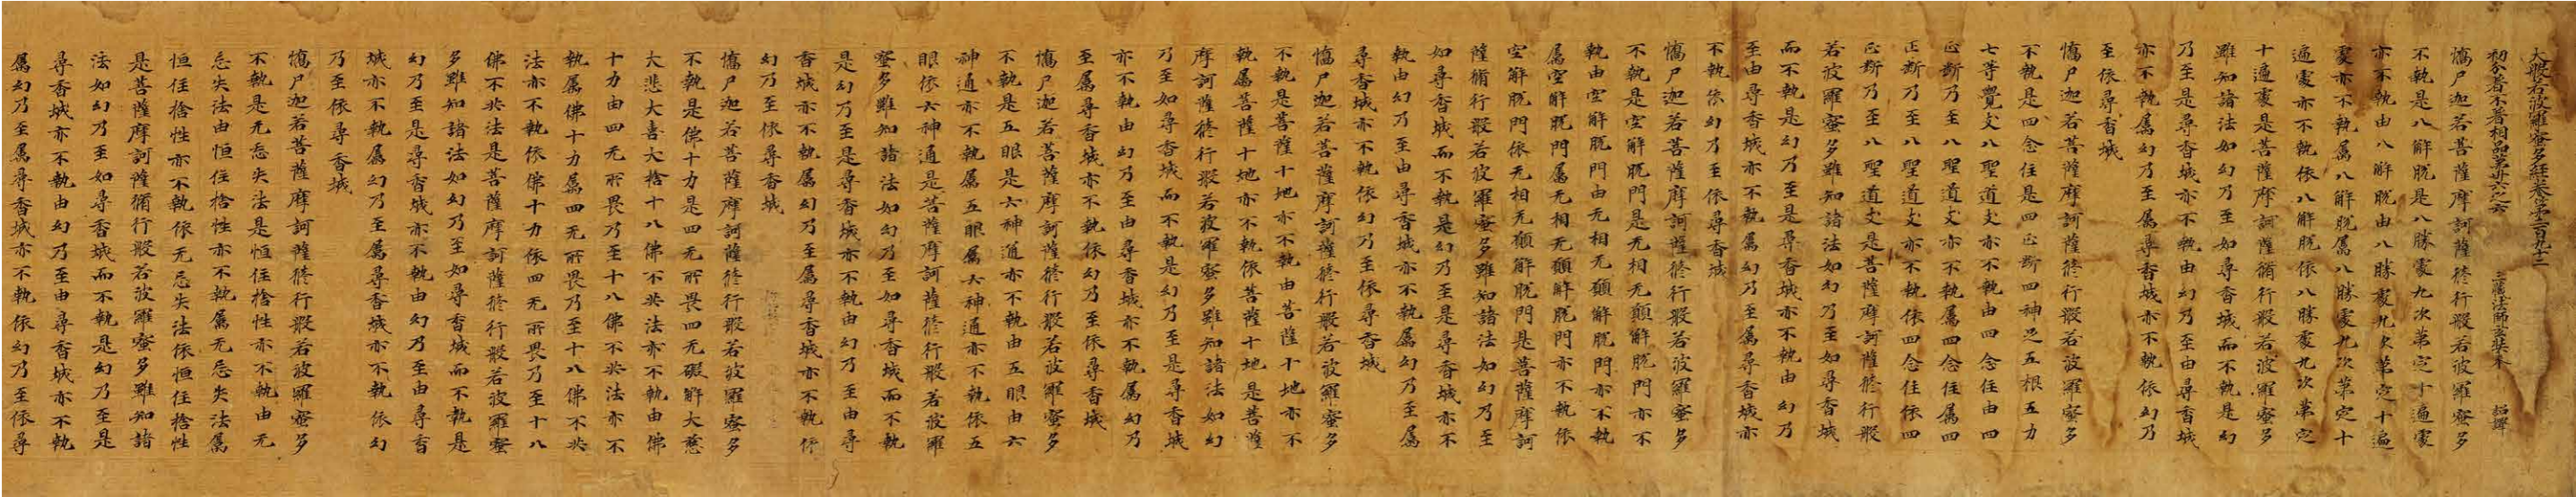 大般若波羅蜜多經卷第二百九十二
初分著不著相品第卅六之六 三藏法師玄奘奉 詔譯
憍尸迦若菩薩摩訶薩修行般若波羅蜜多
不執是八解脫是八勝處九次第定十遍處
亦不執由八解脫由八勝處九次第定十遍
處亦不執屬八解脫屬八勝處九次第定十
遍處亦不執依八解脫依八勝處九次第定
十遍處是菩薩摩訶薩脩行般若波羅蜜多
雖知諸法如幻乃至如尋香城而不執是幻
乃至是尋香城亦不執由幻乃至由尋香城
亦不執屬幻乃至屬尋香城亦不執依幻乃
至依尋香城
憍尸迦若菩薩摩訶薩修行般若波羅蜜多
不執是四念住是四正斷四神足五根五力
七等覺支八聖道支亦不執由四念住由四
正斷乃至八聖道支亦不執屬四念住屬四
正斷乃至八聖道支亦不執依四念住依四
正斷乃至八聖道支是菩薩摩訶薩修行般
若波羅蜜多雖知諸法如幻乃至如尋香城
而不執是幻乃至是尋香城亦不執由幻乃
至由尋香城亦不執屬幻乃至屬尋香城亦
不執依幻乃至依尋香城
憍尸迦若菩薩摩訶薩修行般若波羅蜜多
不執是空解脫門是无相无願解脫門亦不
執由空解脫門由无相无願解脫門亦不執
屬空解脫門屬无相无願解脫門亦不執依
空解脫門依无相无願解脫門是菩薩摩訶
薩脩行般若波羅蜜多雖知諸法如幻乃至
如尋香城而不執是幻乃至是尋香城亦不
執由幻乃至由尋香城亦不執屬幻乃至屬
尋香城亦不執依幻乃至依尋香城
憍尸迦若菩薩摩訶薩修行般若波羅蜜多
不執是菩薩十地亦不執由菩薩十地亦不
執屬菩薩十地亦不執依菩薩十地是菩薩
摩訶薩修行般若波羅蜜多雖知諸法如幻
乃至如尋香城而不執是幻乃至是尋香城
亦不執由幻乃至由尋香城亦不執屬幻乃
至屬尋香城亦不執依幻乃至依尋香城
憍尸迦若菩薩摩訶薩修行般若波羅蜜多
不執是五眼是六神通亦不執由五眼由六
神通亦不執屬五眼屬六神通亦不執依五
眼依六神通是菩薩摩訶薩修行般若波羅
蜜多雖知諸法如幻乃至如尋香城而不執
是幻乃至是尋香城亦不執由幻乃至由尋
香城亦不執屬幻乃至屬尋香城亦不執依
幻乃至依尋香城
憍尸迦若菩薩摩訶薩修行般若波羅蜜多
不執是佛十力是四无所畏四无礙解大慈
大悲大喜大捨十八佛不共法亦不執由佛
十力由四无所畏乃至十八佛不共法亦不
執屬佛十力屬四无所畏乃至十八佛不共
法亦不執依佛十力依四无所畏乃至十八
佛不共法是菩薩摩訶薩修行般若波羅蜜
多雖知諸法如幻乃至如尋香城而不執是
幻乃至是尋香城亦不執由幻乃至由尋香
城亦不執屬幻乃至屬尋香城亦不執依幻
乃至依尋香城
憍尸迦若菩薩摩訶薩修行般若波羅蜜多
不執是无忘失法是恒住捨性亦不執由无
忘失法由恒住捨性亦不執屬无忘失法屬
恒住捨性亦不執依无忘失法依恒住捨性
是菩薩摩訶薩脩行般若波羅蜜多雖知諸
法如幻乃至如尋香城而不執是幻乃至是
尋香城亦不執由幻乃至由尋香城亦不執
屬幻乃至屬尋香城亦不執依幻乃至依尋